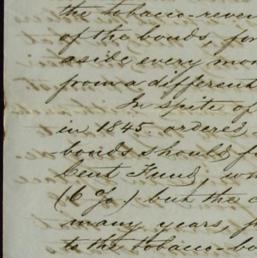 the tobacco-reven
of the bonds, for
aside every mon
from a different
In spite of
in 1845. ordered
bonds should
Cent Fund,
(6 %) but the c
many years,
to the tobacco-bo